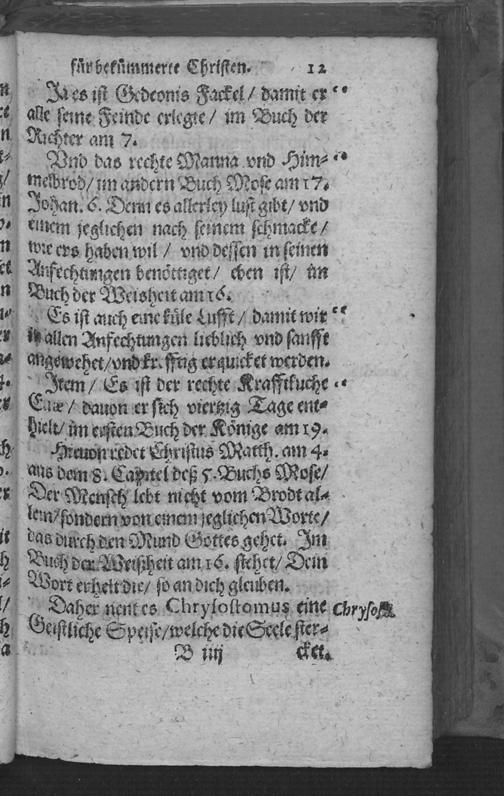 für bekümmerte Christen. 12
Ja es ist Gedeonis Fackel / damit er “
alle seine Feinde erlegte / im Buch der
Richter am 7.
Vnd das rechte Manna vnd Him- “
melbrod / im andern Buch Mose am 17.
Johan. 6. Denn es allerley lust gibt / vnd
einem jeglichen nach seinem schmacke /
wie ers haben wil / vnd dessen in seinen
Anfechtungen benöttiget / eben ist / im
Buch der Weisheit am 16.
Es ist auch eine küle Lufft / damit wir “
in allen Anfechtungen lieblich vnd sanfft
angewehet / vnd krefftig erquicket werden.
Item / Es ist der rechte Krafftkuche “
Eliæ / dauon er sich viertzig Tage ent-
hielt / im ersten Buch der Könige am 19.
Hieuon redet Christus Matth. am 4.
aus dem 8. Capitel deß 5. Buchs Mose /
Der Mensch lebt nicht vom Brodt al-
lein / sondern von einem jeglichen Worte /
das durch den Mund Gottes gehet. Im
Buch der Weißheit am 16. stehet / Dein
Wort erhelt die / so an dich gleuben.
Daher nent es Chrysostomus eine Chrysost.
Geistliche Speise / welche die Seele ster-
B iiij cket.